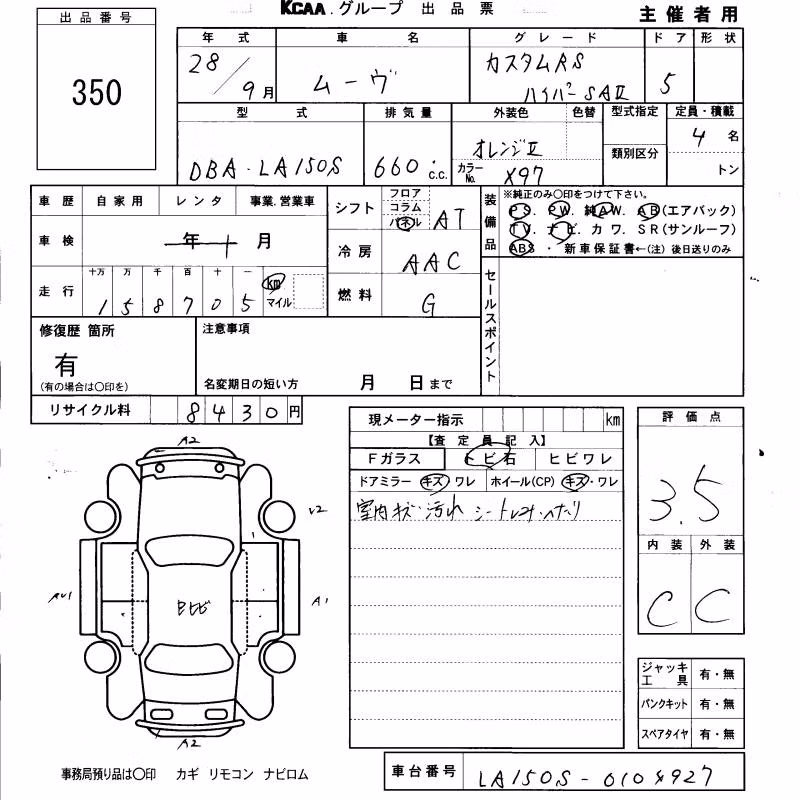 KCAA.グループ 出品票
主催者用
出品番号
350
年式 車名 グレード ドア 形状
28/9月 ムーヴ カスタムRS ハイパーSAⅡ 5
型式 排気量 外装色 色替 型式指定 定員・積載
DBA-LA150S 660 c.c. オレンジⅡ 4 名
カラーNo. X97 類別区分 トン
車歴 自家用 レンタ 事業.営業車
車検 年 月
走行 十万 万 千 百 十 一
1 5 8 7 0 5 km マイル
シフト フロア コラム パネル AT
冷房 AAC
燃料 G
装備品 ※純正のみ〇印をつけて下さい。
PS. PW. 純AW. AB(エアバック)
TV. ナビ. カワ. SR(サンルーフ)
ABS ・ 新車保証書←(注)後日送りのみ
セールスポイント
修復歴 箇所
有
(有の場合は〇印を)
注意事項
名変期日の短い方 月 日まで
リサイクル料 8430円
現メーター指示 km
【査定員記入】
Fガラス トビ石 ヒビワレ
ドアミラー キズ ワレ ホイール(CP) キズ・ワレ
室内キズ・汚れ
評価点
3.5
内装 外装
C C
A2
v2
A1
A2
ジャッキ工具 有・無
パンクキット 有・無
スペアタイヤ 有・無
事務局預り品は〇印 カギ リモコン ナビロム
車台番号 LA150S-0104927